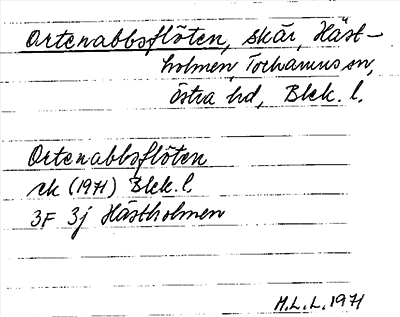 Ortenabbsflöten, skär, Häst-
holmen, Torhamns sn,
Östra hd, Blek. l.
Ortenabbsflöten
rk (1971) Blek. l
3F 3j Hästholmen
M.L.L. 1971